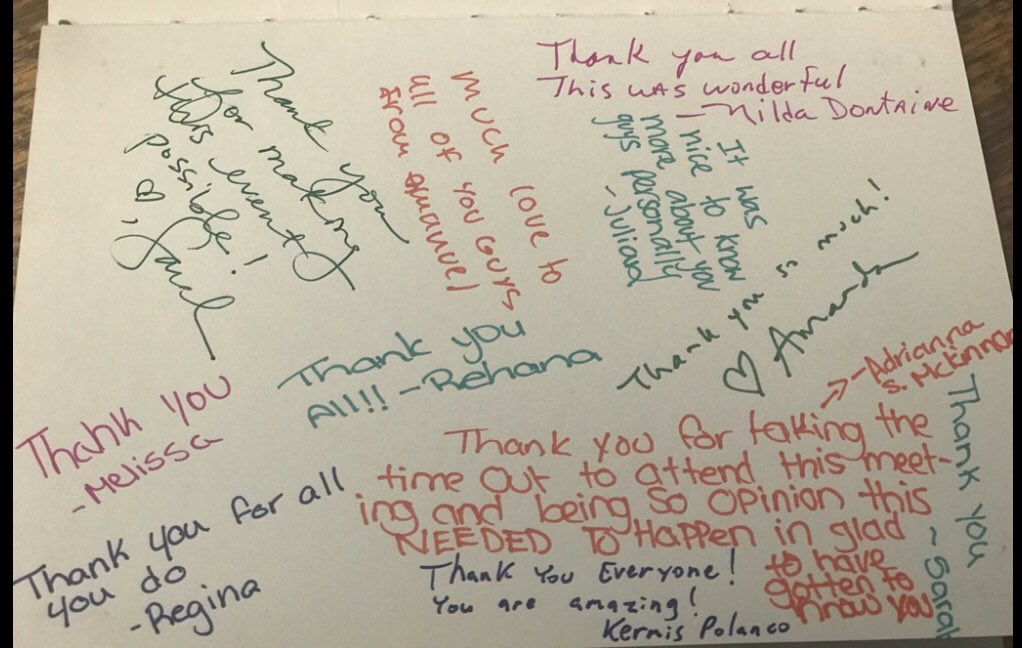 Thank you all
This was wonderful
- Nilda Dontaine
Thank you
for making
this event
possible!
♡,
Much love to
all of you guys
from emanuel
It was
nice to know
more about you
guys personally
- Juliand
Thank you so much!
♡ Amanda
Thank you
All!! - Rehana
Thank you
- Melissa
Thank you for all
you do
- Regina
- Adrianna
S. McKinnon
Thank you for taking the
time out to attend this meet-
ing and being so opinion this
NEEDED To Happen in glad
to have
gotten to
know you
Thank you
~ Sarah
Thank You Everyone!
You are amazing!
Kernis Polanco